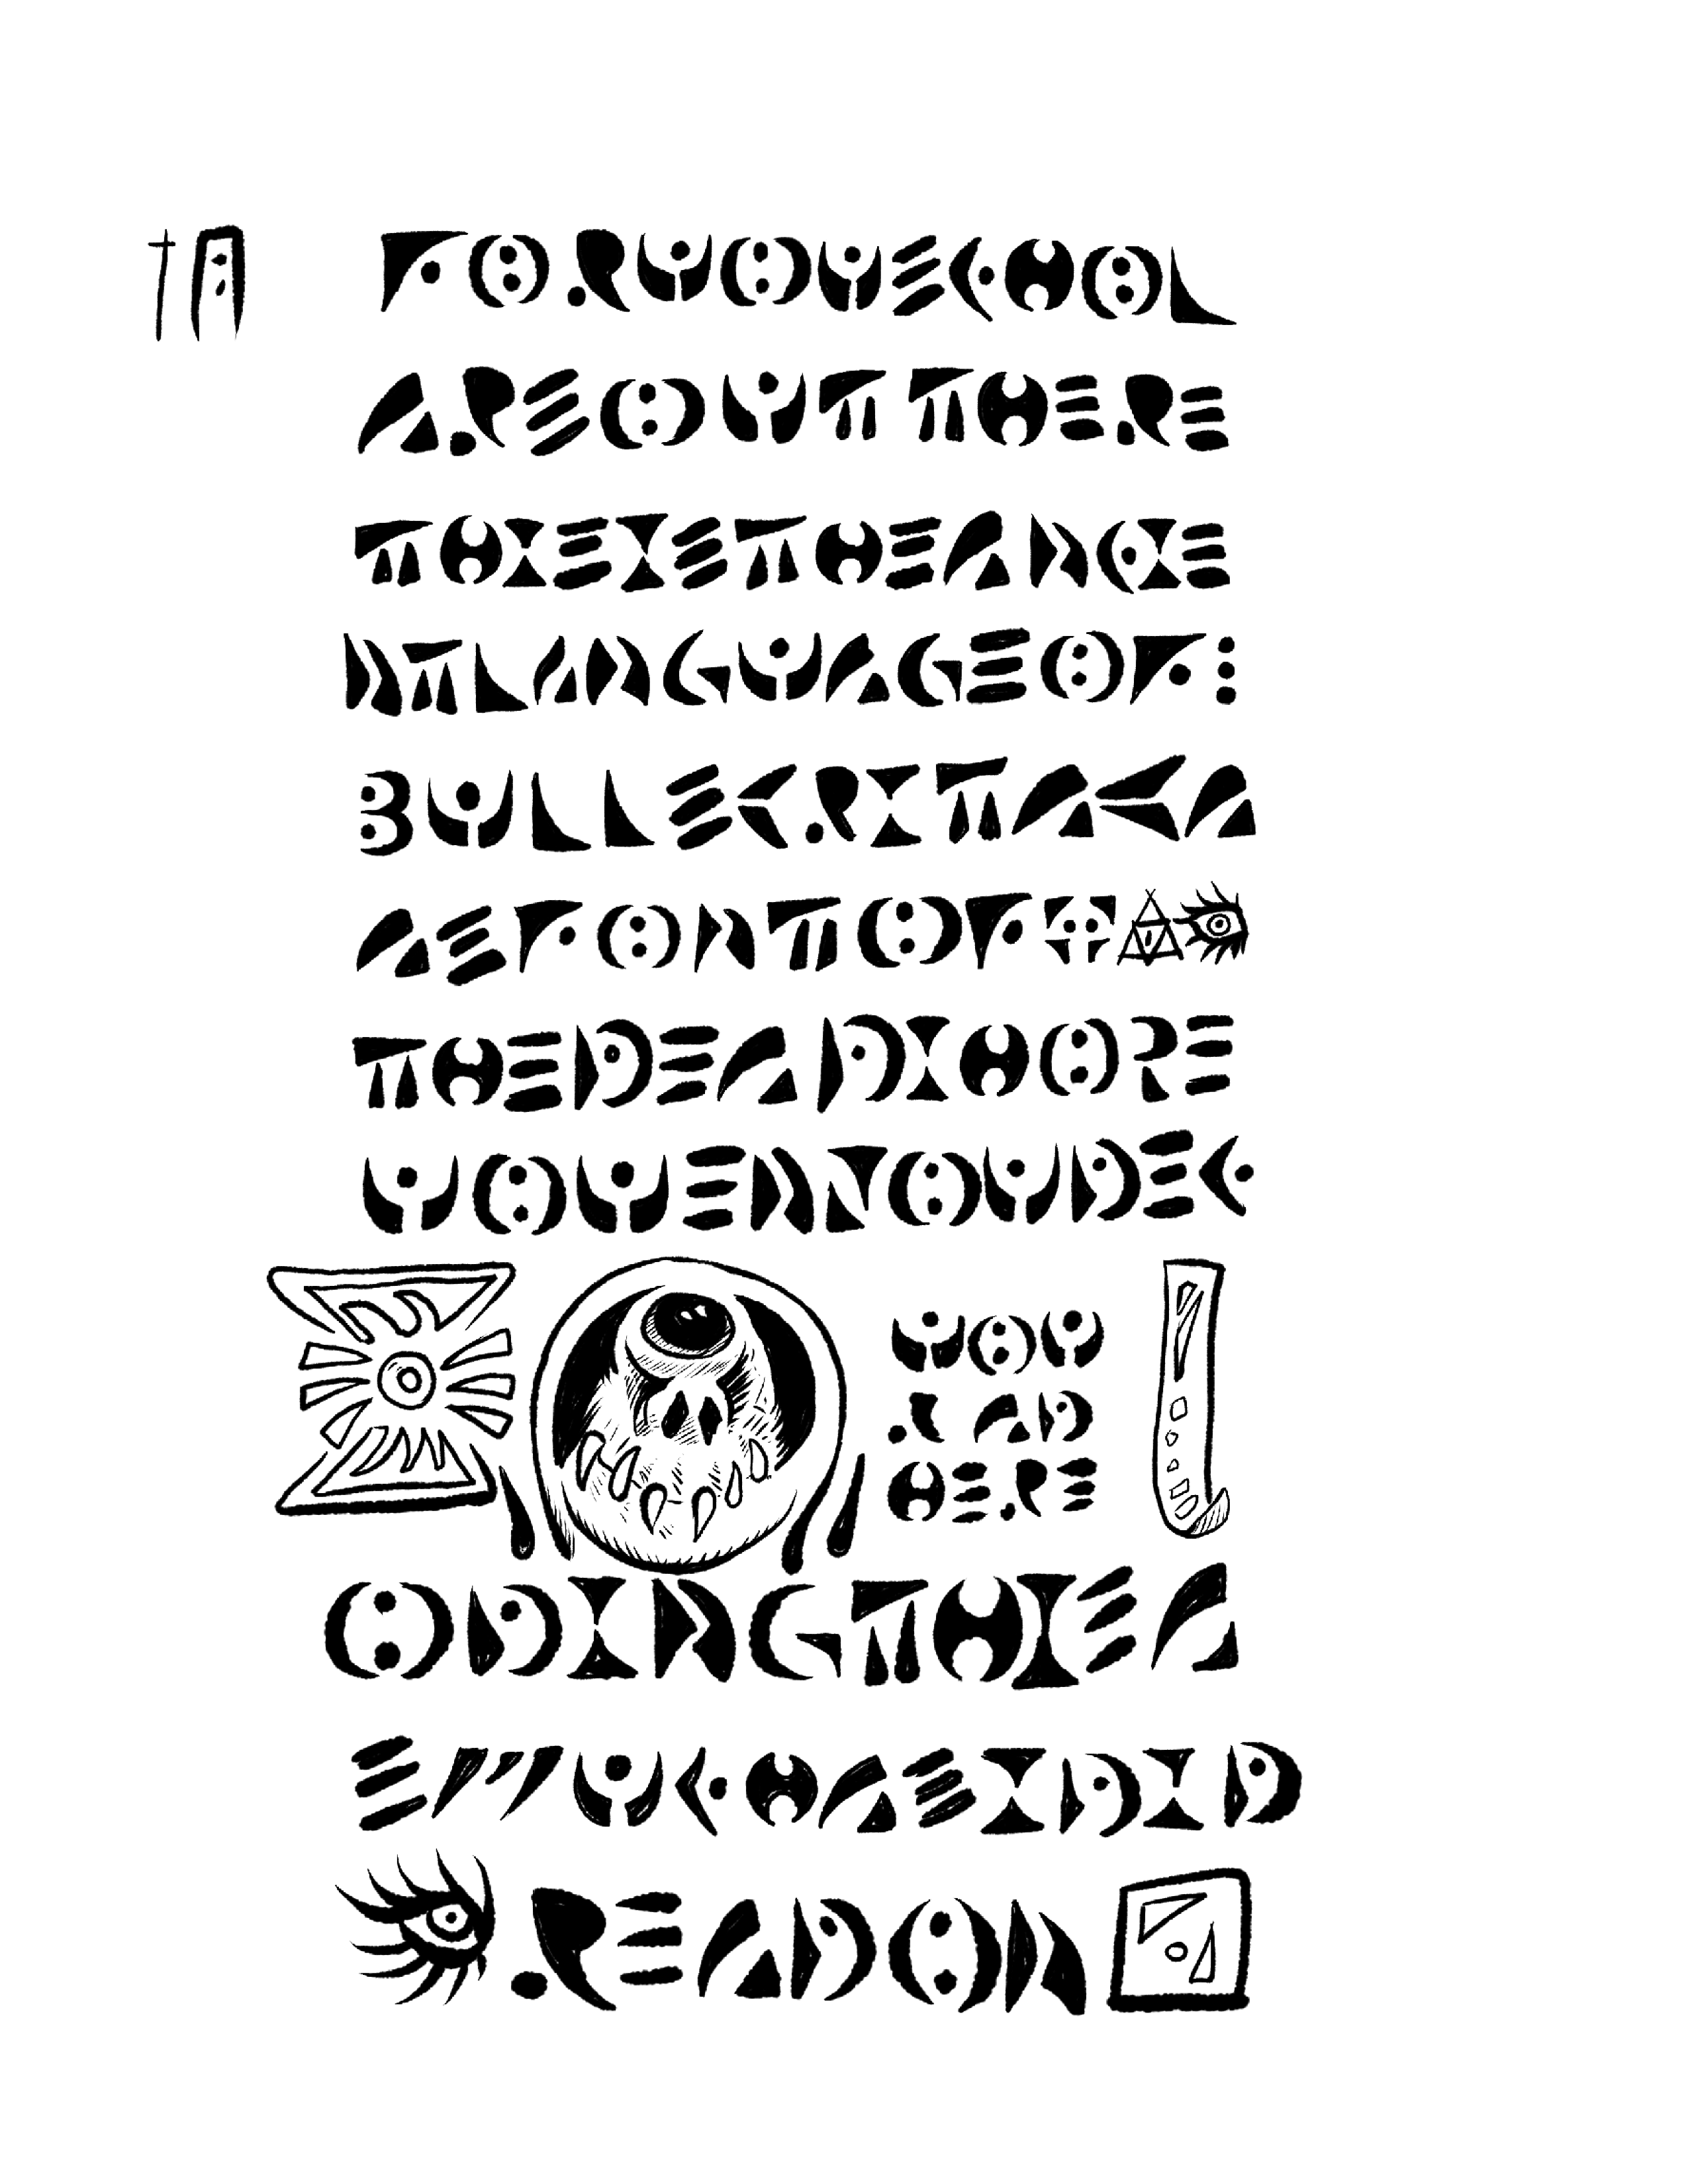 FOR YOU SCHOL
ARS OUT THERE
THIS IS THE ANCIE
NT LANGUAGE OF:
BULLSKRIT AKA
AS FONT OF
THE DEAD I HOPE
YOU ENJOY DEC
YOU
HERE
ODING THIS A
S MUCH AS I DID
READ ON